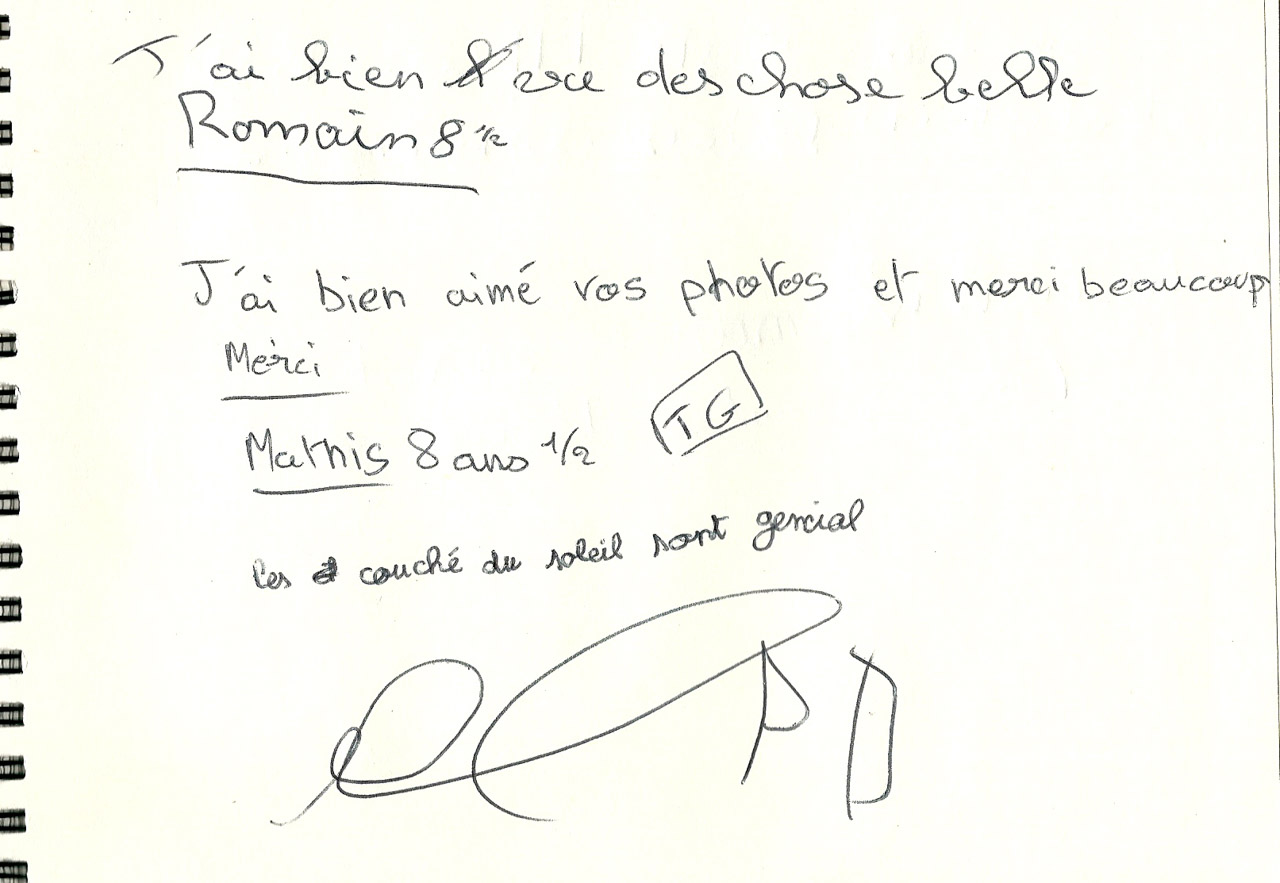 J'ai bien vue des chose belle
Romain 8 1/2
J'ai bien aimé vos photos et merci beaucoup
Merci
Mathis 8 ans 1/2
TG
les couché du soleil sont genial